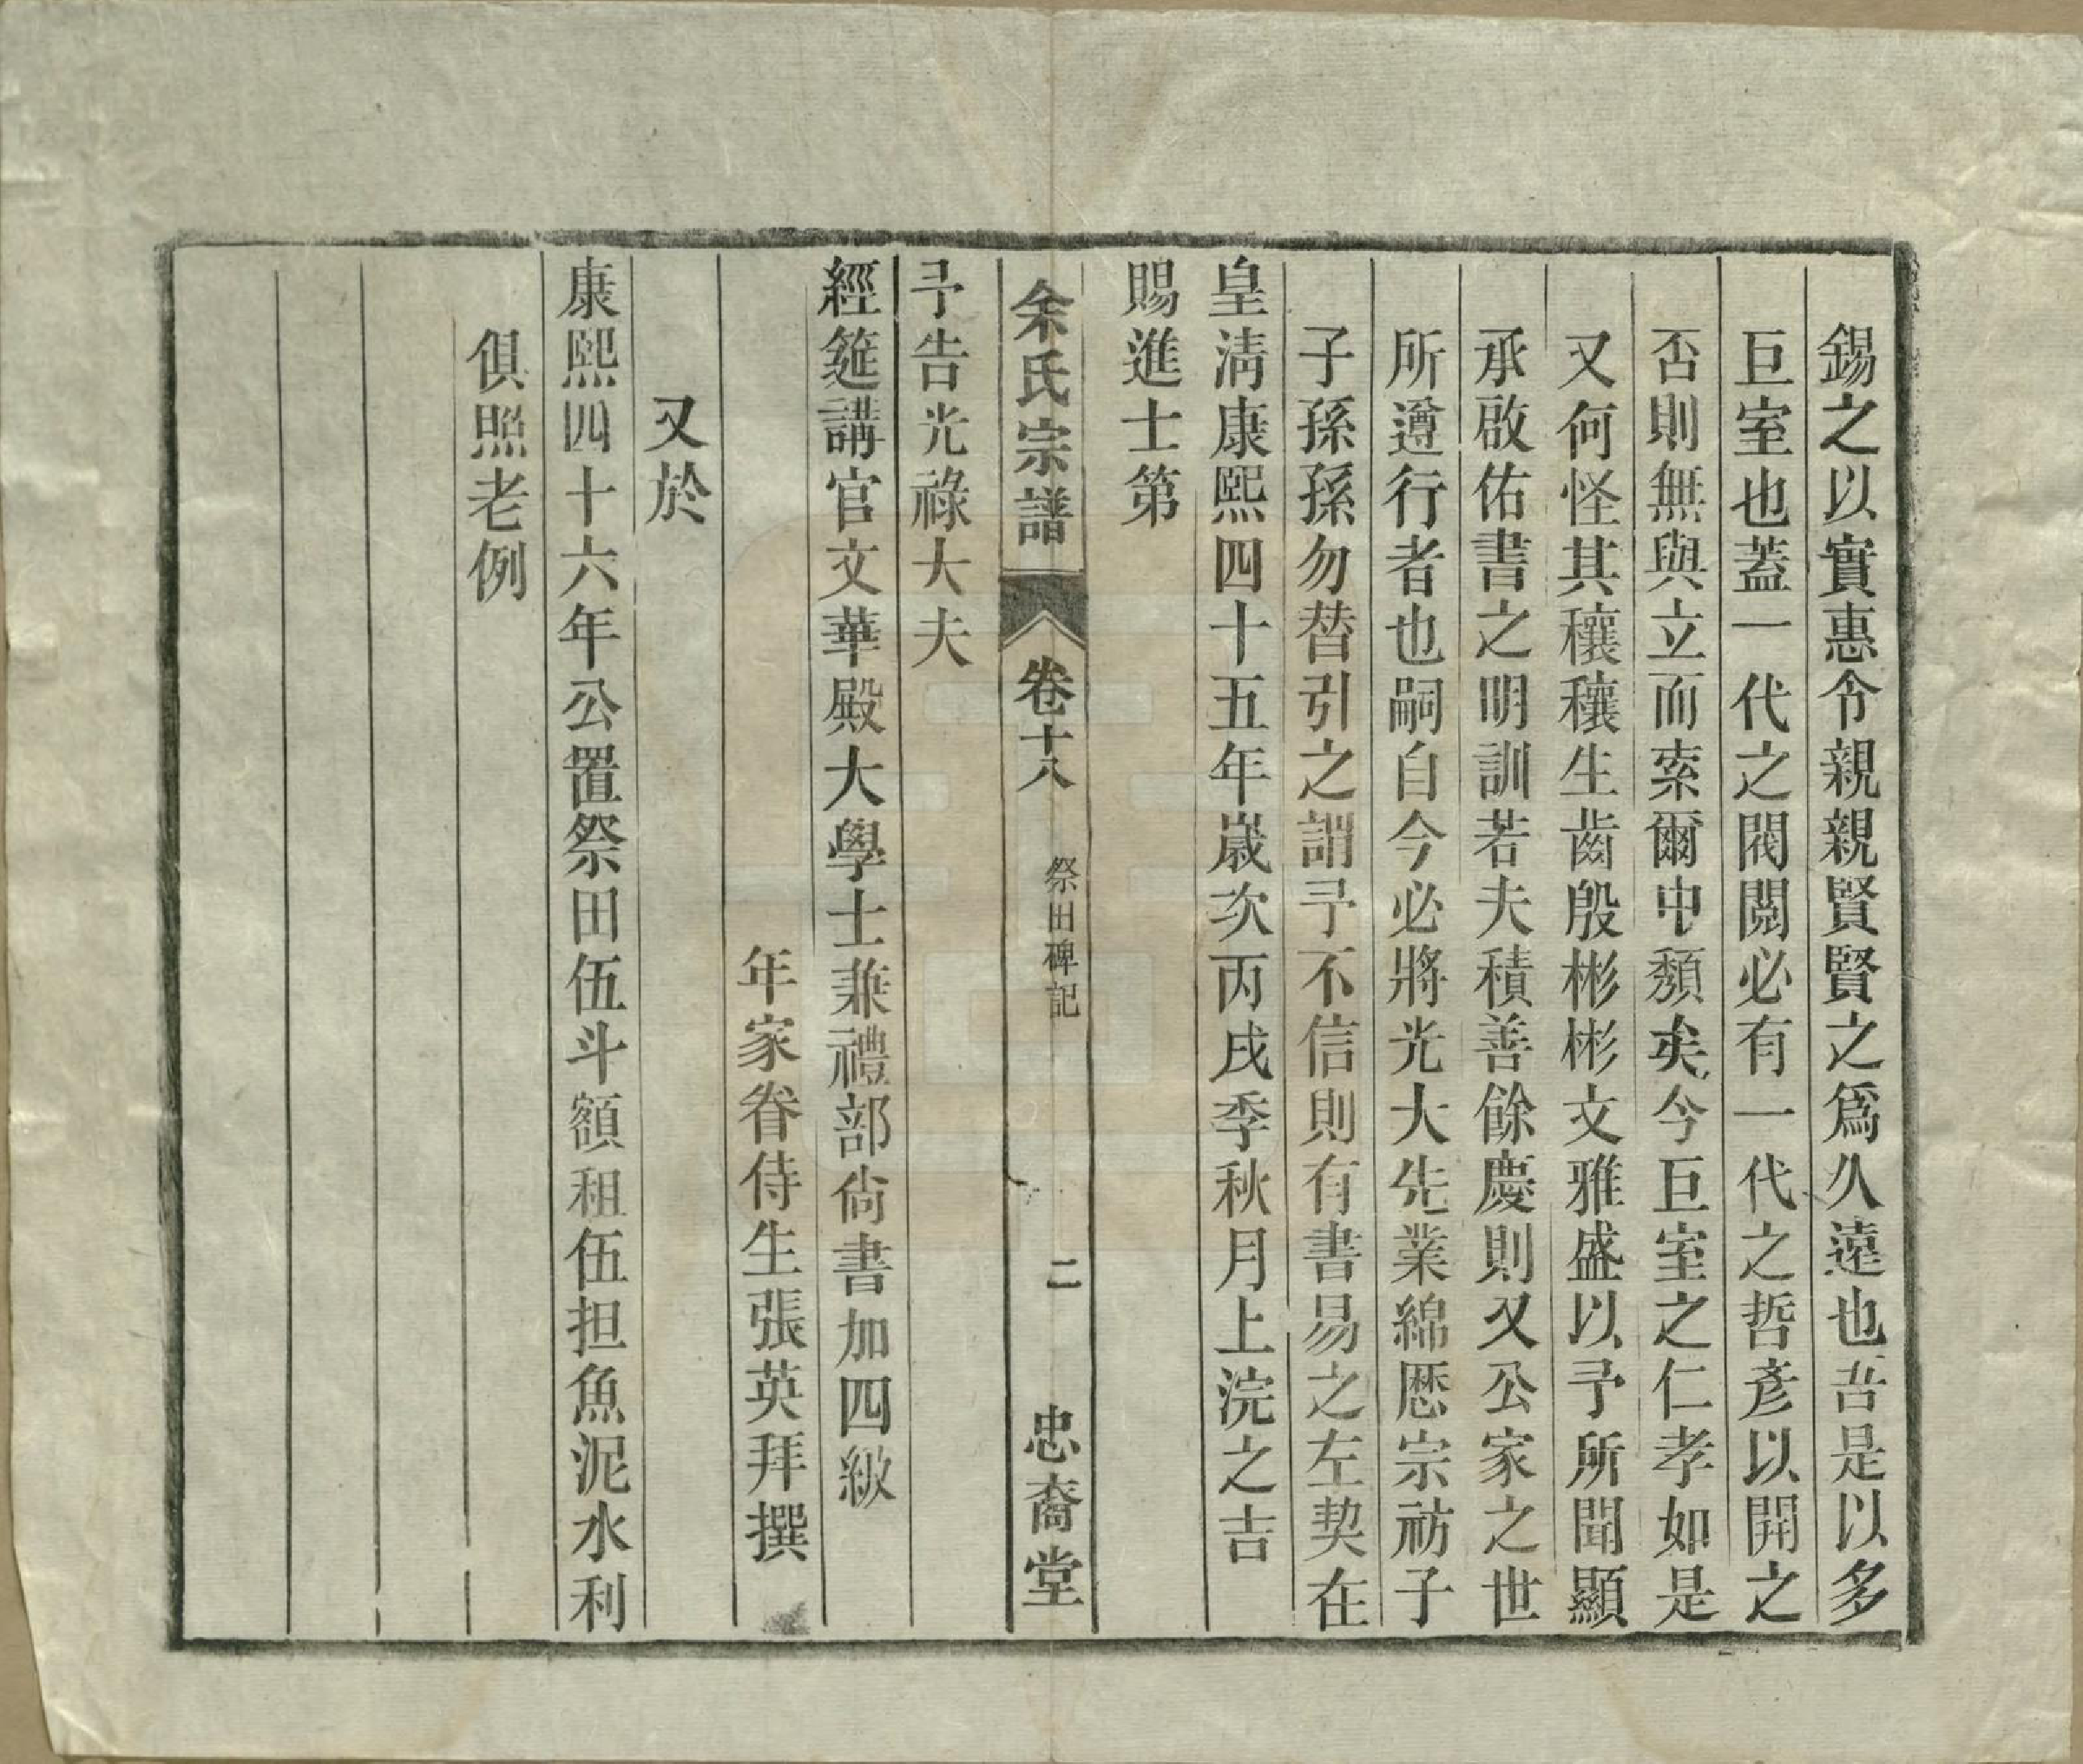 錫之以實惠令親親賢賢之爲久遠也吾是以多
巨室也蓋一代之閥閱必有一代之哲彥以開之
否則無與立而索爾中頽矣今巨室之仁孝如是
又何怪其穰穰生齒殷彬彬文雅盛以予所聞顯
承啟佑書之明訓若夫積善餘慶則又公家之世
所遵行者也嗣自今必將光大先業綿歷宗祊子
子孫孫勿替引之謂予不信則有書易之左契在
皇淸康熙四十五年歲次丙戌季秋月上浣之吉
賜進士第
余氏宗譜 卷十八 祭田碑記 二 忠裔堂
予告光祿大夫
經筵講官文華殿大學士兼禮部尙書加四級
年家眷侍生張英拜撰
又於
康熙四十六年公置祭田伍斗額租伍担魚泥水利
俱照老例